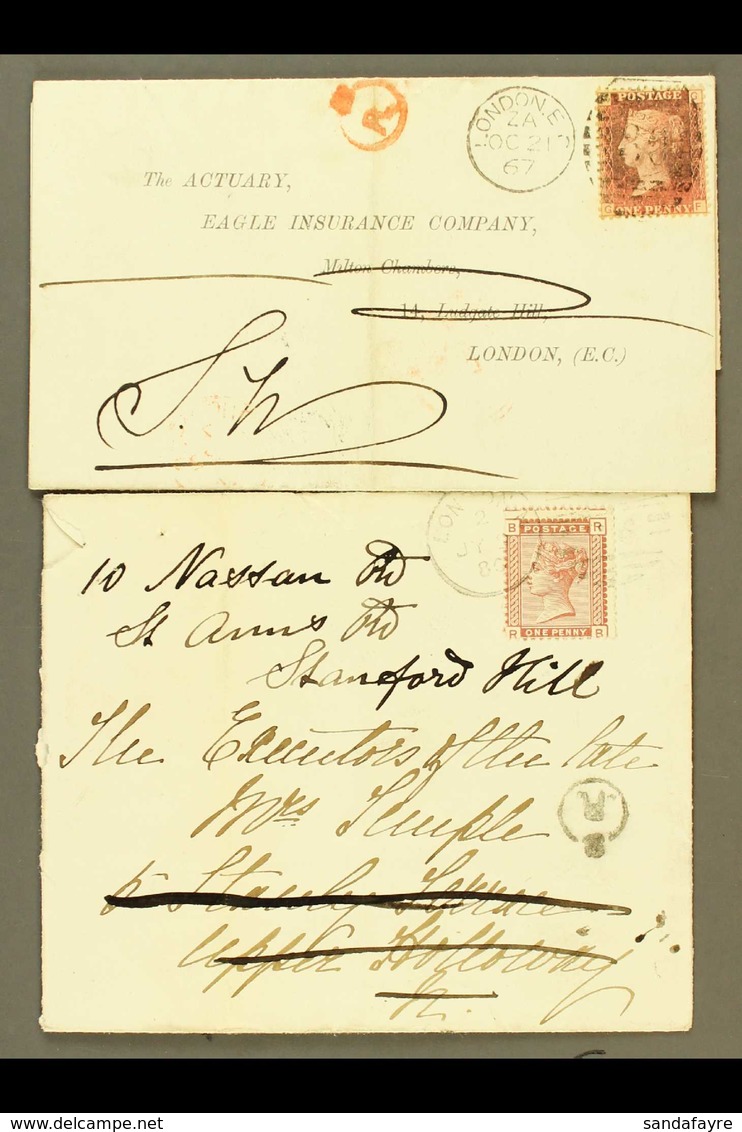 R
LONDON.E.C
2A
OC 21
67
POSTAGE
ONE PENNY
G F
The ACTUARY,
EAGLE INSURANCE COMPANY,
Milton Chambers,
14, Ludgate Hill,
LONDON, (E.C.)
S.W
LON
2
JY
80
B POSTAGE R
R ONE PENNY B
10 Nassau Rd
St Anns Rd
Stamford Hill
The Executors of the late
Mrs Temple
5 Stanley Terrace
Upper Holloway
N.
R
delcampe.net
sandafayre